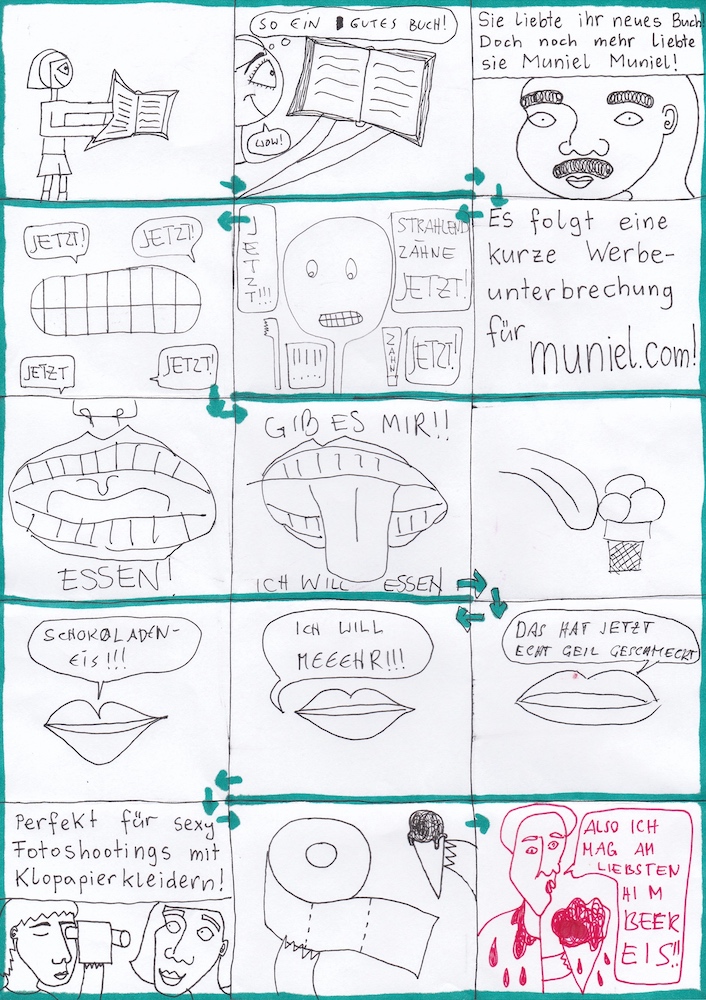 SO EIN GUTES BUCH!
WOW!
Sie liebte ihr neues Buch!
Doch noch mehr liebte
sie Muniel Muniel!
Es folgt eine
kurze Werbe-
unterbrechung
für
muniel.com!
JETZT!!!
STRAHLEND
ZÄHNE
JETZT!
ZAHN
JETZT!
JETZT!
JETZT!
JETZT
JETZT!
ESSEN!
GIB ES MIR!!
ICH WILL ESSEN
DAS HAT JETZT
ECHT GEIL GESCHMECKT
ICH WILL
MEEEHR!!!
SCHOKOLADEN-
EIS!!!
Perfekt für sexy
Fotoshootings mit
Klopapierkleidern!
ALSO ICH
MAG AM
LIEBSTEN
HIM
BEER
EIS!!